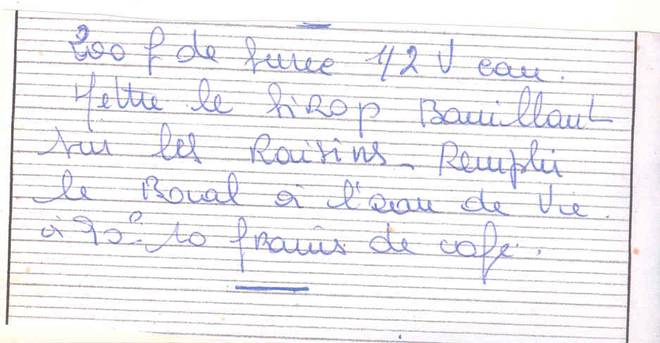 200 g de sucre 1/2 V eau.
Mettre le sirop Bouillant
sur les Raisins - Remplir
le Bocal à l'eau de vie.
à 90° 10 grains de café.